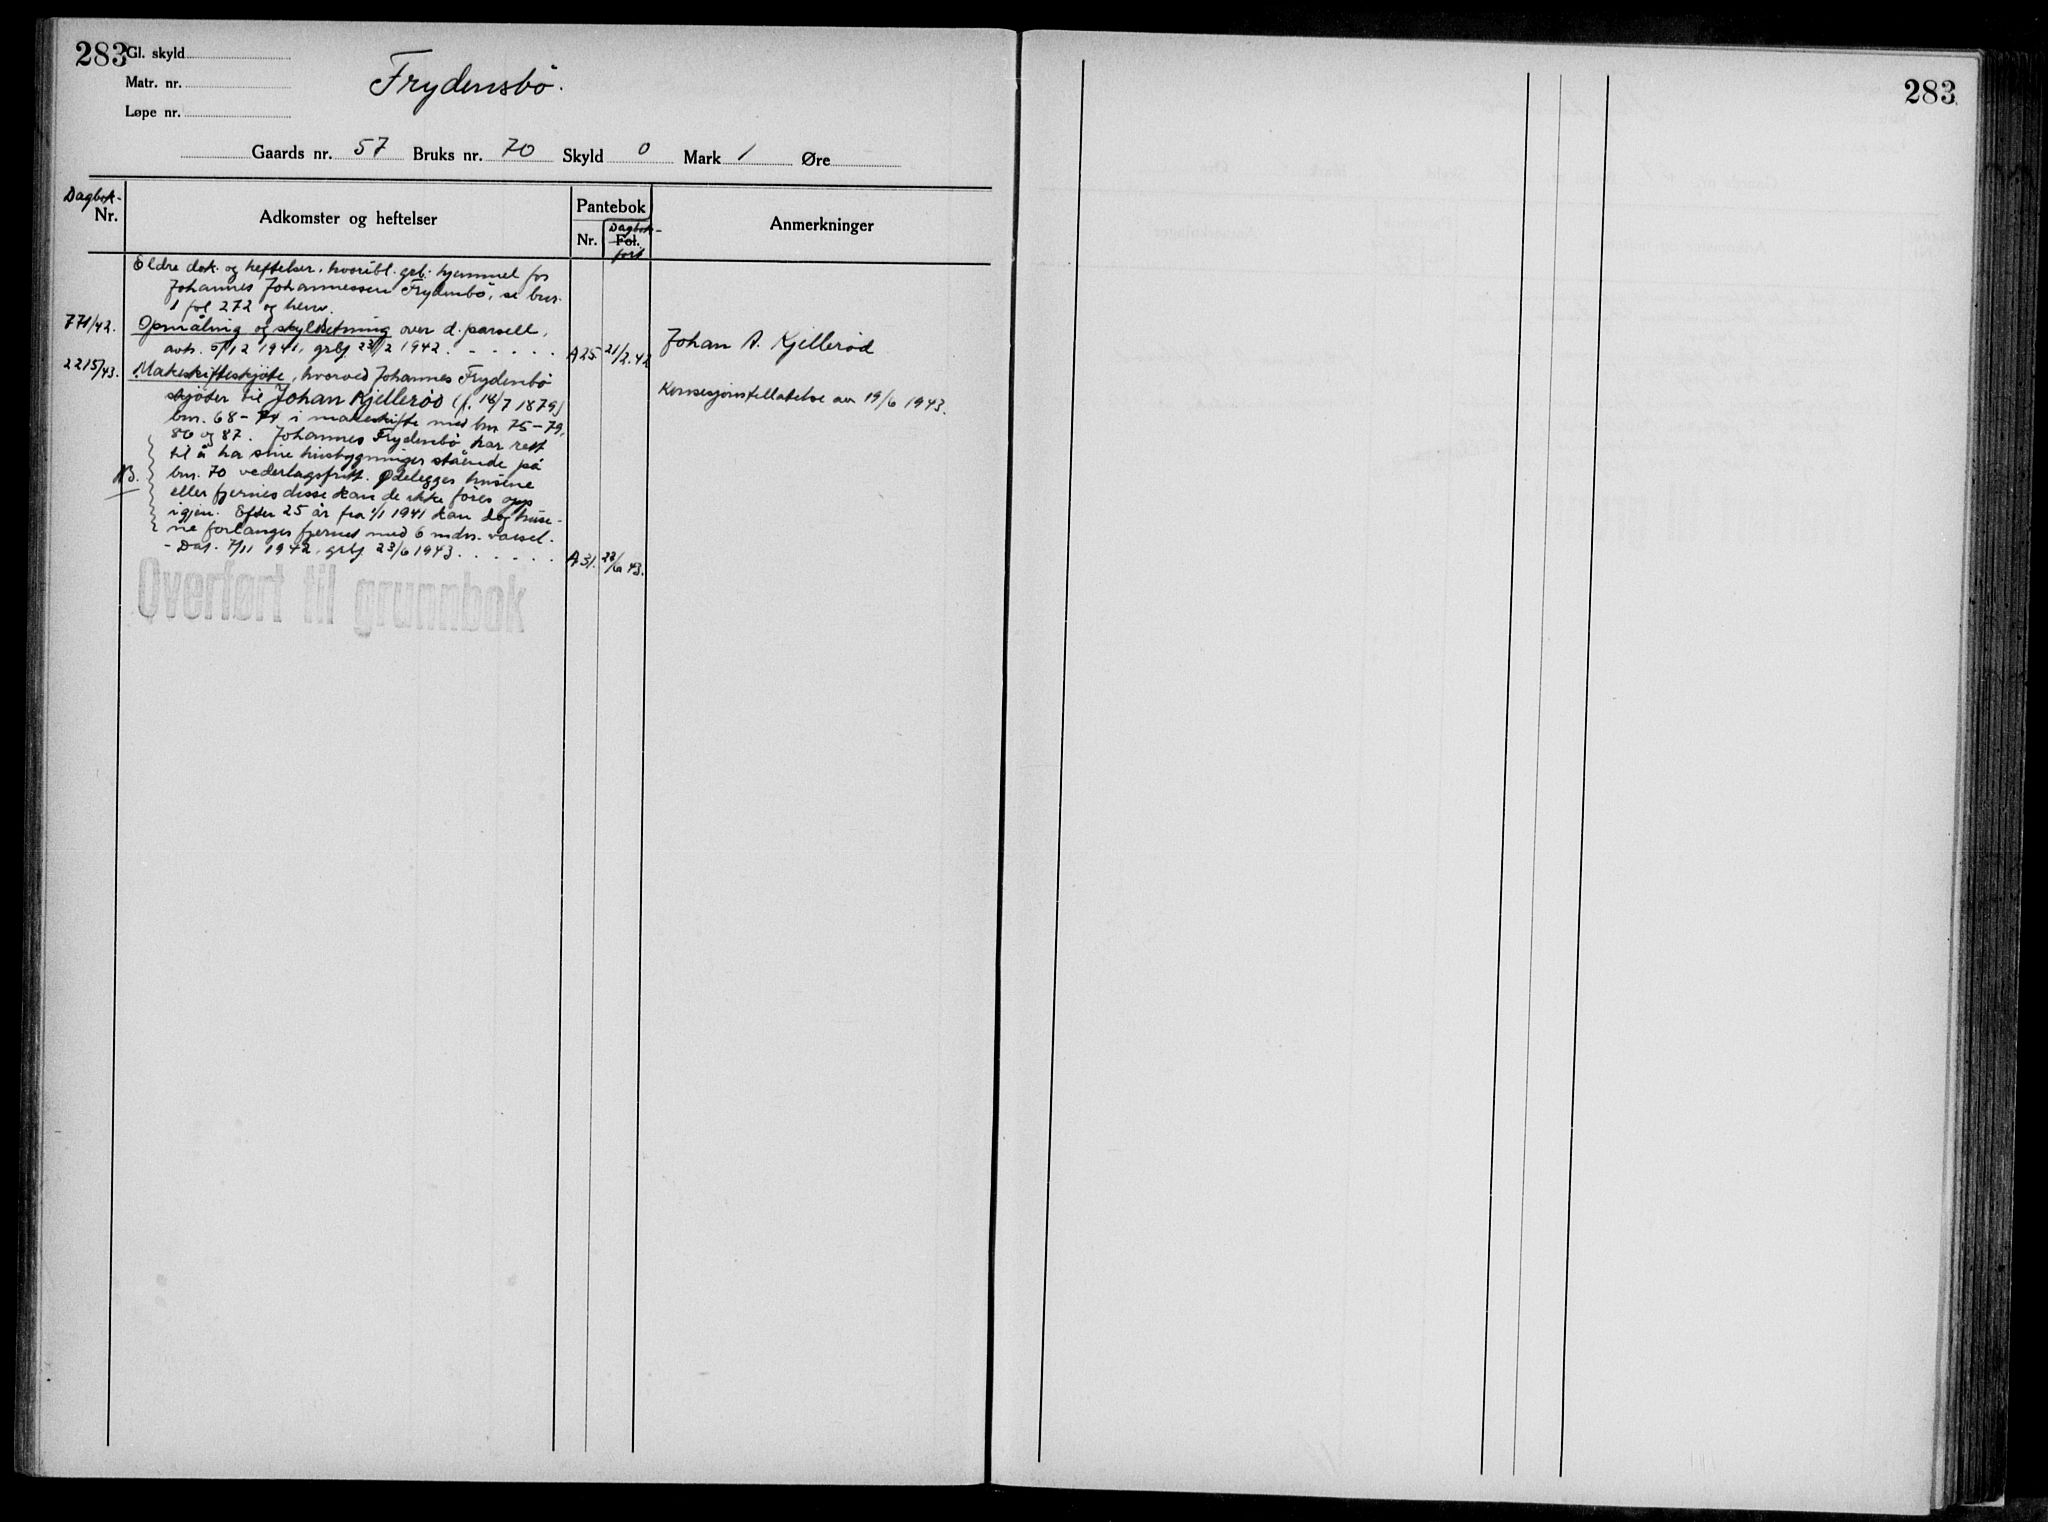 283
Gl. skyld
Matr. nr.
Løpe nr.
Frydensbö.
Gaards nr. 57 Bruks nr. 70 Skyld 0 Mark 1 Øre
Dagbok-
Nr.
Adkomster og heftelser
Pantebok
Nr.
Dagbok-
Fol.
ført
Anmerkninger
Eldre dok. og heftelser, hvoribl. grb. hjemmel for
Johannes Johannessen Frydenbö, se bnr.
1 fol 272 og henv.
771/42. Opmåling og skyldsetning over d. parsell,
avh. 5/12 1941, grbf 23/2 1942. - - - - - A25. 21/2.42
Johan A. Kjellerød
2215/43. Makeskifteskjöte, hvorved Johannes Frydenbö
skjöter til Johan Kjelleröd (f. 18/7 1879)
Konsesjonstillatelse av 19/6 1943.
bnr. 68-74 i makeskifte med bnr 75-79,
86 og 87. Johannes Frydenbö har rett
til å ha sine husbygninger stående på
NB. bnr. 70 vederlagsfritt. Ødelegges husene
eller fjernes disse kan de ikke föres opp
igjen. Efter 25 år fra 1/1 1941 kan dog huse-
ne forlanges fjernet med 6 mdrs. varsel.
- Dat. 7/11 1942, grbf 23/6 1943. - - - - - A31. 23/6 43.
Overført til grunnbok
283